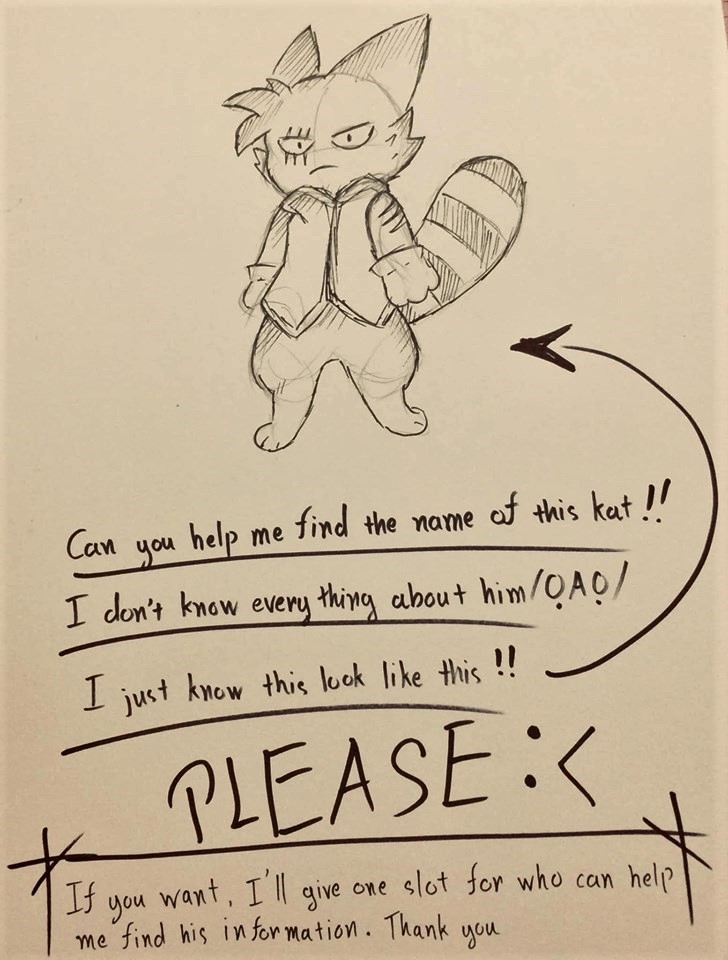 Can you help me find the name of this kat!!
I don't know everything about him/ỌAỌ/
I just know this look like this!!
PLEASE :<
If you want, I'll give one slot for who can help
me find his information. Thank you